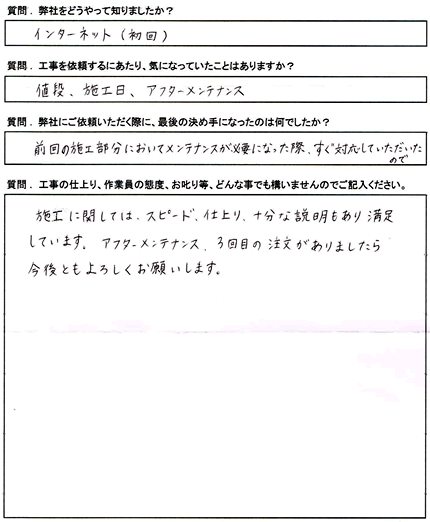 質問．弊社をどうやって知りましたか？
インターネット（初回）
質問．工事を依頼するにあたり、気になっていたことはありますか？
値段、施工日、アフターメンテナンス
質問．弊社にご依頼いただく際に、最後の決め手になったのは何でしたか？
前回の施工部分においてメンテナンスが必要になった際、すぐ対応していただいた
ので
質問．工事の仕上り、作業員の態度、お叱り等、どんな事でも構いませんのでご記入ください。
施工に関しては、スピード、仕上り、十分な説明もあり満足
しています。アフターメンテナンス、3回目の注文がありましたら
今後ともよろしくお願いします。